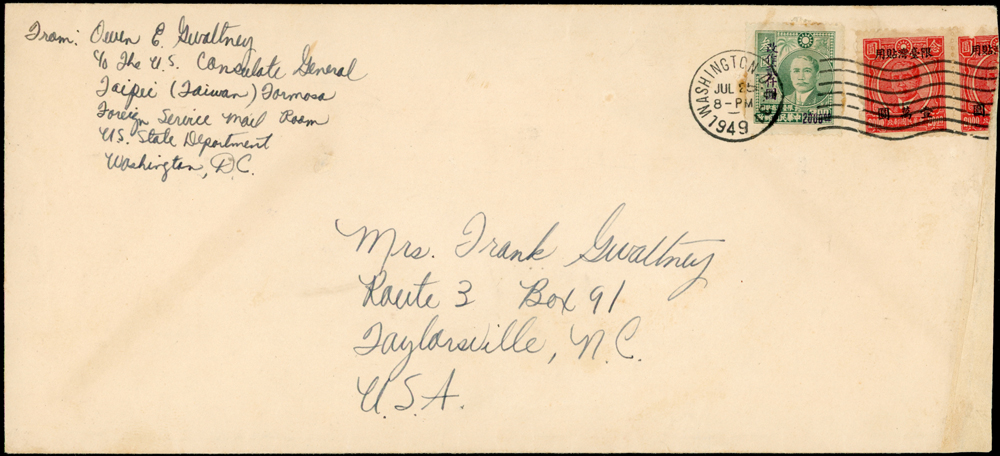 From: Owen E. Gwaltney
c/o The U.S. Consulate General
Taipei (Taiwan) Formosa
Foreign Service Mail Room
U.S. State Department
Washington, D.C.
WASHINGTON
JUL 25
8-PM
1949
改作
2000
用貼灣臺限
Mrs. Frank Gwaltney
Route 3 Box 91
Taylorsville, N.C.
U.S.A.